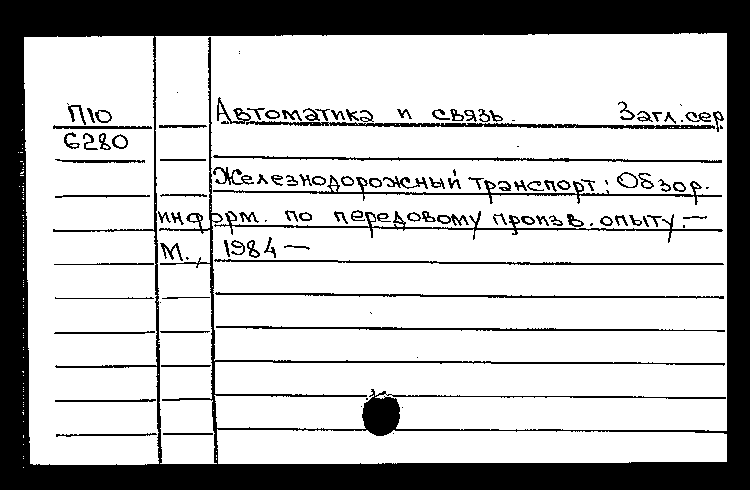 П10 Автоматика и связь. Загл.сер
6280
Железнодорожный транспорт: Обзор.
информ. по передовому произв. опыту.—
М., 1984—